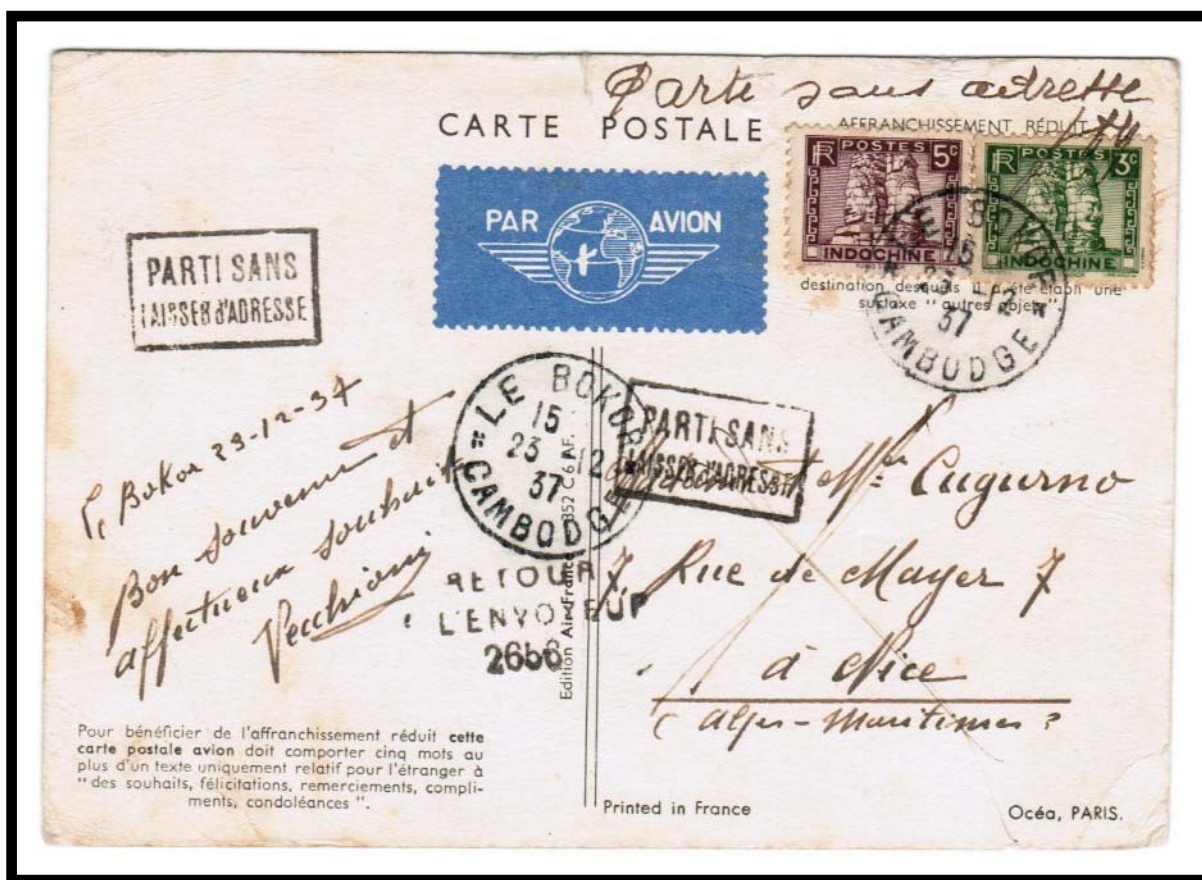 Carte sans adresse
CARTE POSTALE
AFFRANCHISSEMENT RÉDUIT
RF POSTES 5c
INDOCHINE
RF POSTES 3c
INDOCHINE
PAR AVION
destination desquels il a été établi une
surtaxe " autres objets".
LE BOKOR
15
23 12
37
CAMBODGE
PARTI SANS
LAISSER d'ADRESSE
LE BOKOR
15
23 12
37
CAMBODGE
PARTI SANS
LAISSER d'ADRESSE
Bokor 23-12-37
Bon souvenir et
affectueux souhaits
Vecchioni
et Mme Cugurno
7, Rue de Mayer 7
à Nice
(Alpes-Maritimes)
RETOUR
L'ENVOYEUR
2656
Edition Air-France 352 C 6 AF.
Pour bénéficier de l'affranchissement réduit cette
carte postale avion doit comporter cinq mots au
plus d'un texte uniquement relatif pour l'étranger à
" des souhaits, félicitations, remerciements, compli-
ments, condoléances ".
Printed in France
Océa, PARIS.